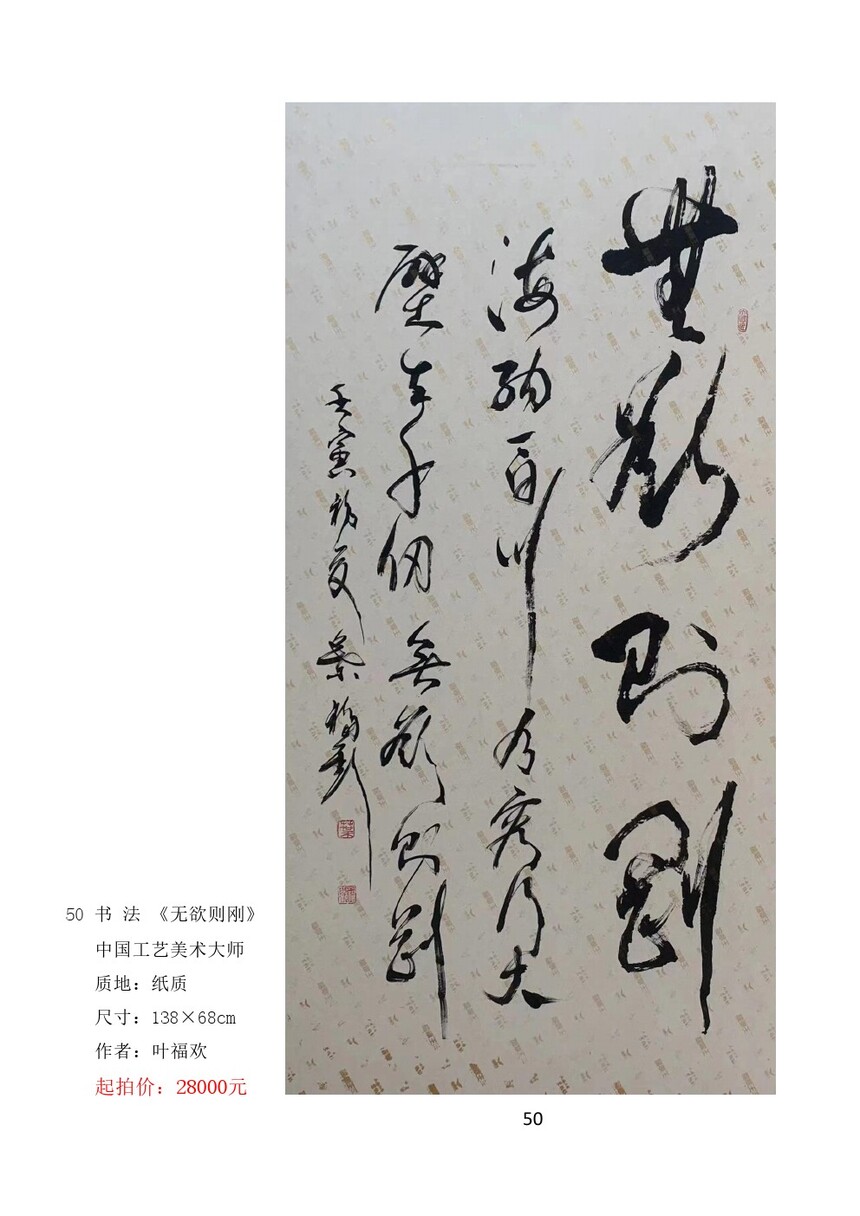 無欲则剛
海纳百川有容乃大
壁立千仞無欲则剛
壬寅初夏葉福歡
50 书 法 《无欲则刚》
中国工艺美术大师
质地：纸质
尺寸：138×68cm
作者：叶福欢
起拍价：28000元
50